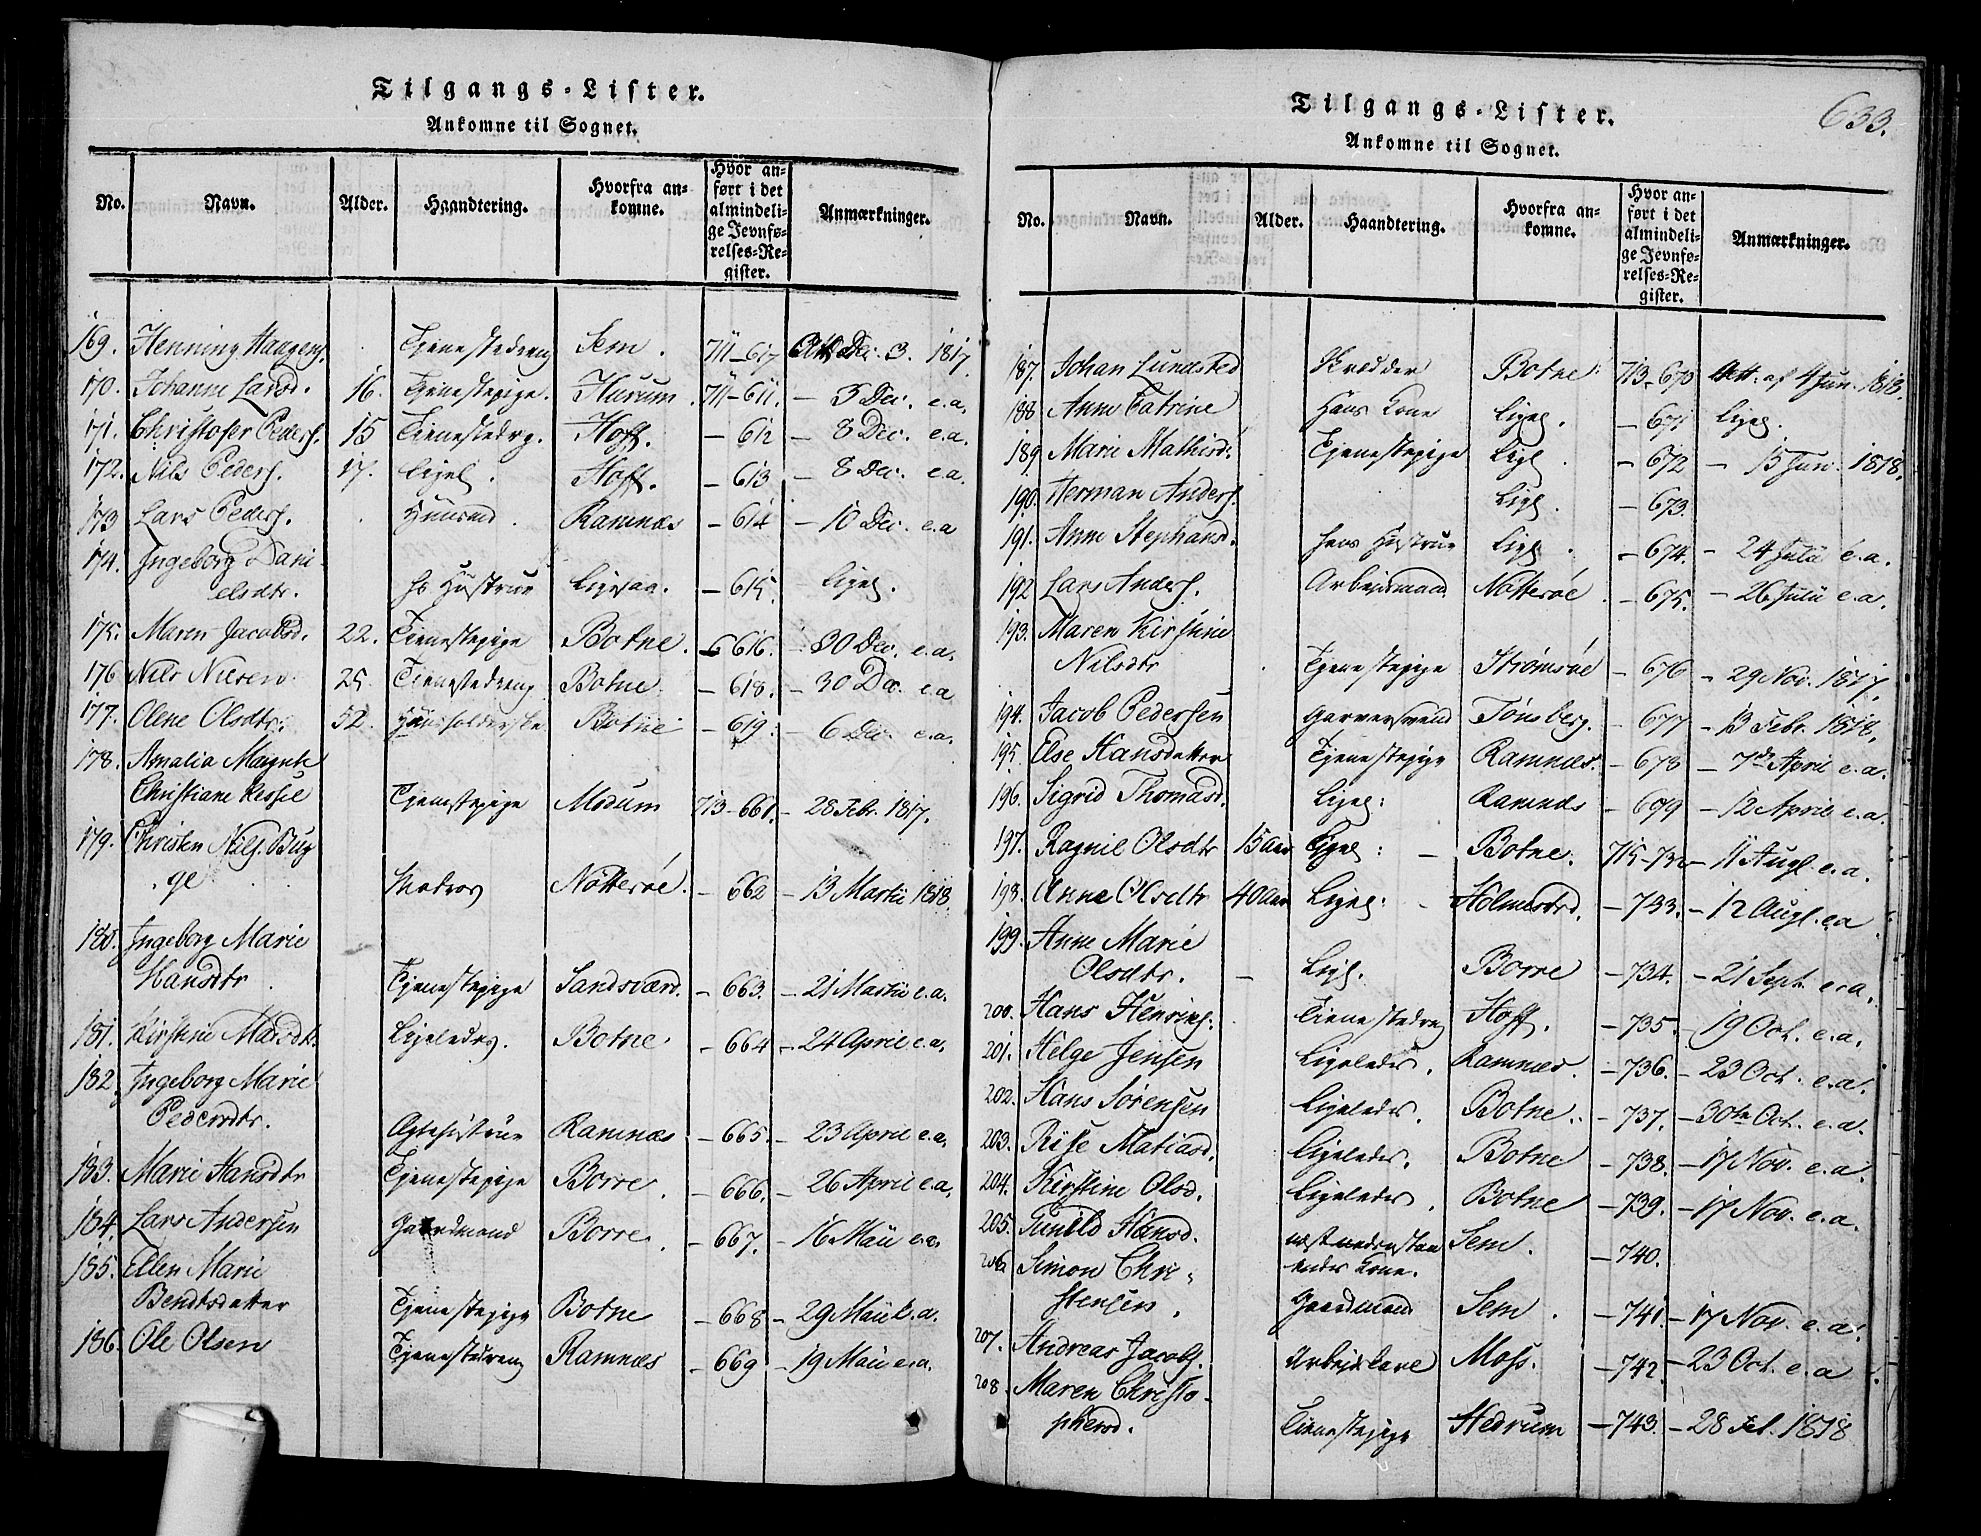 Tilgangs-Lister.
Ankomne til Sognet.
No. Navn. Alder. Haandtering. Hvorfra ankomne. Hvor anført i det almindelige Jevnførelses-Register. Anmærkninger.
169. Henning Haagens. Tjenestedreng Sem. 711-617 Att. Dec. 3. 1817
170. Johanne Larsd. 16. Tjenestepige. Hurum. 711-611. - 3 Dec. e.a.
171. Christofer Peders. 15 Tienestedrg. Hoff. - 612 - 8 Dec. e.a.
172. Nils Peders. 17. Ligel. Hoff. - 613 - 8 Dec. e.a.
173 Lars Peders. Huusmd. Ramnæs - 614 - 10 Dec. e.a
174. Ingeborg Dani-
elsdtr. hs Hustrue Ligesaa. - 615. - Ligel.
175. Maren Jacobsd. 22. Tienestepige Botne. - 616. - 30 Dec. e.a.
176 Nils Nilsen. 25. Tienestedreng Botne. - 618. - 30 Dec. e.a
177. Olene Olsdtr. 52. Huusholderske Botne - 619. - 6 Dec. e.a.
178. Amalia
Christiane Tjenestepige Modum 713-661. - 28 Febr. 1817.
179. Christen Nils. Bug
ge Matros Nötteröe. - 662 - 13 Martii 1818.
180. Ingeborg Marie
Hansdtr. Tjenestepige Sandsværd. - 663. - 21 Martii e.a.
181. Kirstine Ligeledes. Botne - 664 - 24 April e.a.
182. Ingeborg Marie
Pedersdtr. Ramnæs - 665. - 23 April e.a.
183. Marie Hansdtr Tjenestepige Borre. - 666. - 26 April e.a.
184. Lars Andersen Gaardmand Borre. - 667. - 16 Maii e.a.
185. Ellen Marie
Bendtsdatter Tjenestepige Botne - 668 - 29 Maii e.a.
186. Ole Olsen Tjenestedreng Ramnæs - 669 - 19 Maii e.a.
633.
Tilgangs-Lister.
Ankomne til Sognet.
No. Navn. Alder. Haandtering. Hvorfra ankomne. Hvor anført i det almindelige Jevnførelses-Register. Anmærkninger.
187. Johan Lundsted Skrædder Botne. 713-670 Att. af 4 Jun. 1818.
188. Anne Catrine Hans Kone Ligel. - 671 Ligel.
189. Marie Mathisd. Tjenestepige Ligl. - 672 - 15 Jun. 1818.
190. Herman Anders. Ligl. - 673.
191. Anne Stephansd. hans Hustrue Ligl. - 674. - 24 Julii e.a.
192 Lars Anders. Arbejdsmand Nötteröe - 675. - 26 Julii e.a.
193. Maren Kirstine
Nilsdtr Tjenestepige Strömsöe - 676 - 29 Nov. 1817.
194. Jacob Pedersen Garversvend Tönsberg. - 677 - 13 Febr. 1818.
195. Else Hansdatter Tjenestepige Ramnæs. - 678 - 7de April e.a.
196. Sigrid Thomasd. Ligel: Ramnæs - 679 - 12 April e.a.
197. Ragnil Olsdtr 15 Aar Ligel: - Botne. 715-732 - 11 Augl. e.a.
198. Anne Olsdtr 40 Aar Ligel: - Holmestrd. - 733. - 12 Augl. e.a
199. Anne Marie
Olsdtr. - Ligl. Borre - 734. - 21 Sept. e.a.
200. Hans Henrichs. Tienestedreng Hoff. - 735. - 19 Oct. e.a.
201. Helge Jensen Ligeledes. Ramnæs. - 736. - 23 Oct. e.a.
202. Hans Sörensen Ligeledes. Botne. - 737. - 30te Oct. e.a.
203. Rise Matiasd. Ligeledes. Botne - 738. - 17 Nov. e.a.
204. Kirstine Olsd. Ligeledes. Botne - 739. - 17 Nov. e.a.
205. Gunild Hansd. næstnedenstaaendes Kone. Sem. - 740.
206 Simon Chri-
stensen. Gaardmand Sem. - 741. - 17 Nov. e.a.
207. Andreas Jacobs. Arbejdskarl Moss. - 742. - 23 Oct. e.a
208. Maren Christo-
phersd. Tienestepige Hedrum - 743. - 28 Feb. 1818